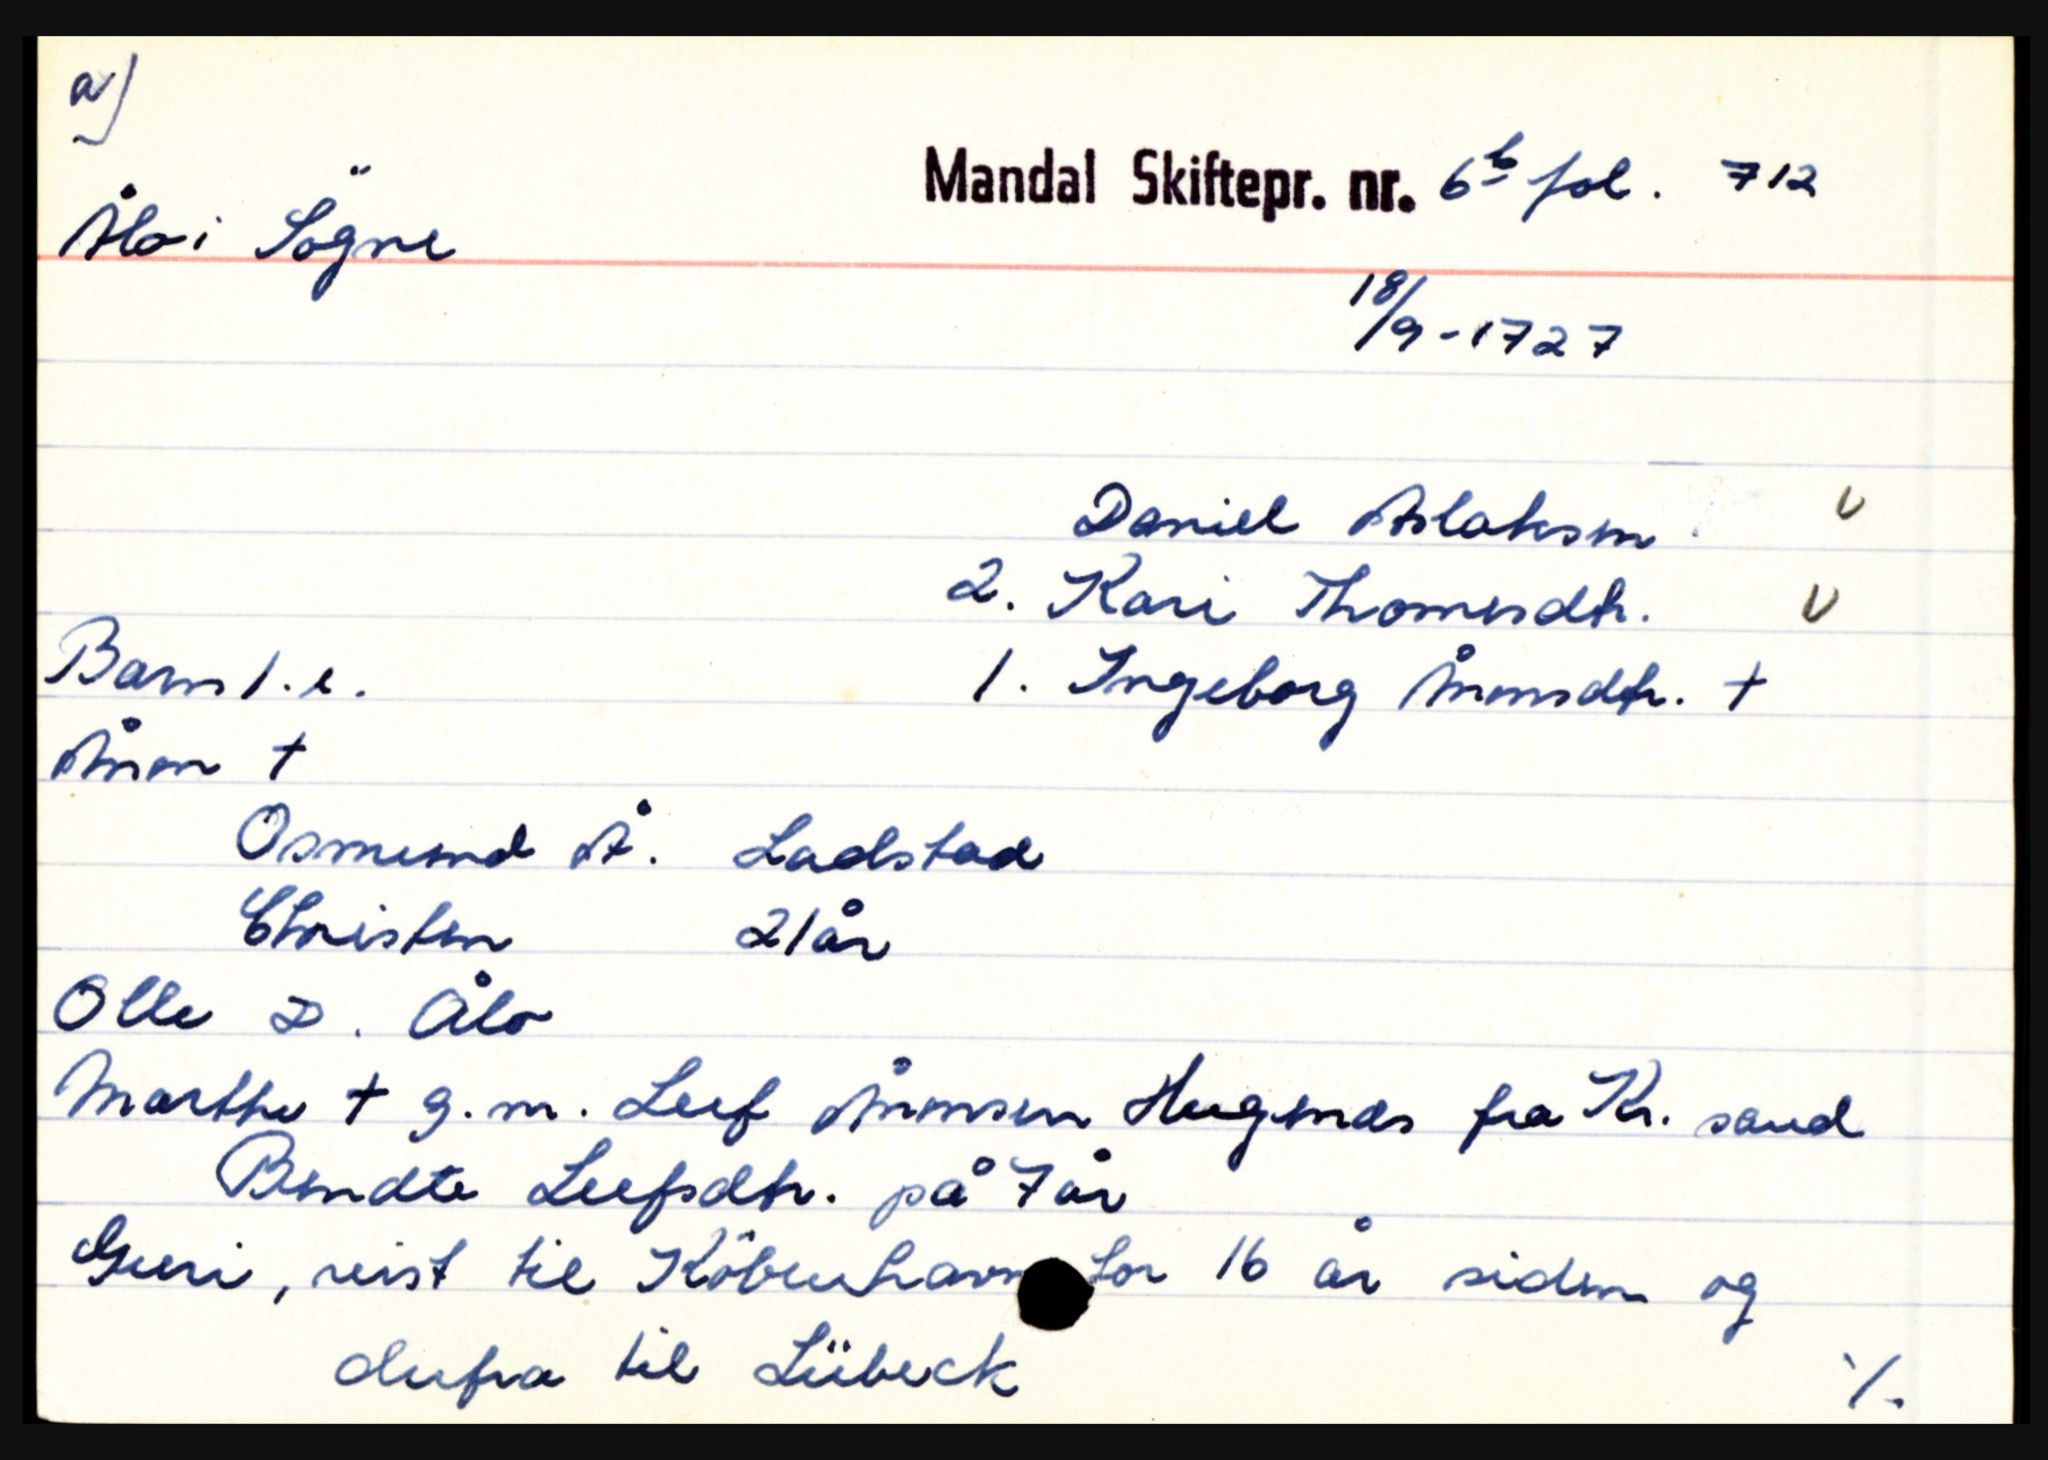 a)
Mandal Skiftepr. nr. 6b fol. 712
Ålo i Sögne
18/9-1727
Daniel Aslaksen V
2. Kari Thomesdtr. V
Barn 1. e.
1. Ingeborg Ånensdtr. †
Ånen †
Osmund Å. Ladstad
Christen 21 år
Olle D. Ålo
Marthe † g.m. Leef Ånensen Hugenæs fra Kr. sand
Bendte Leefsdtr. på 7 år
Guri, reist til Köbenhavn for 16 år siden og
derfra til Lübeck
./.